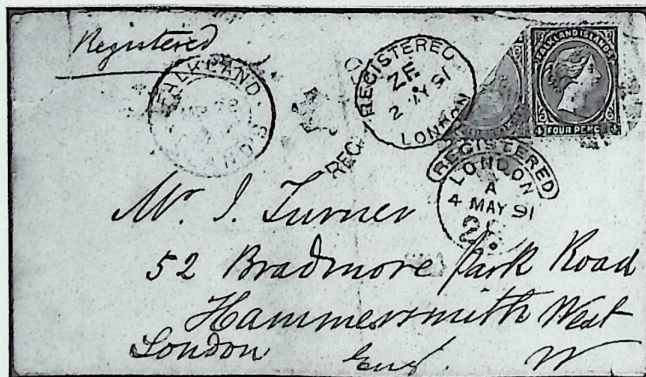 Registered
FALKLAND
ISLANDS
REGISTERED
ZE
2 MY 91
LONDON
FALKLAND ISLANDS
FOUR PENCE
REGISTERED
LONDON
A
4 MAY 91
Mr. J. Turner
52 Bradmore Park Road
Hammersmith West
London Eng. W